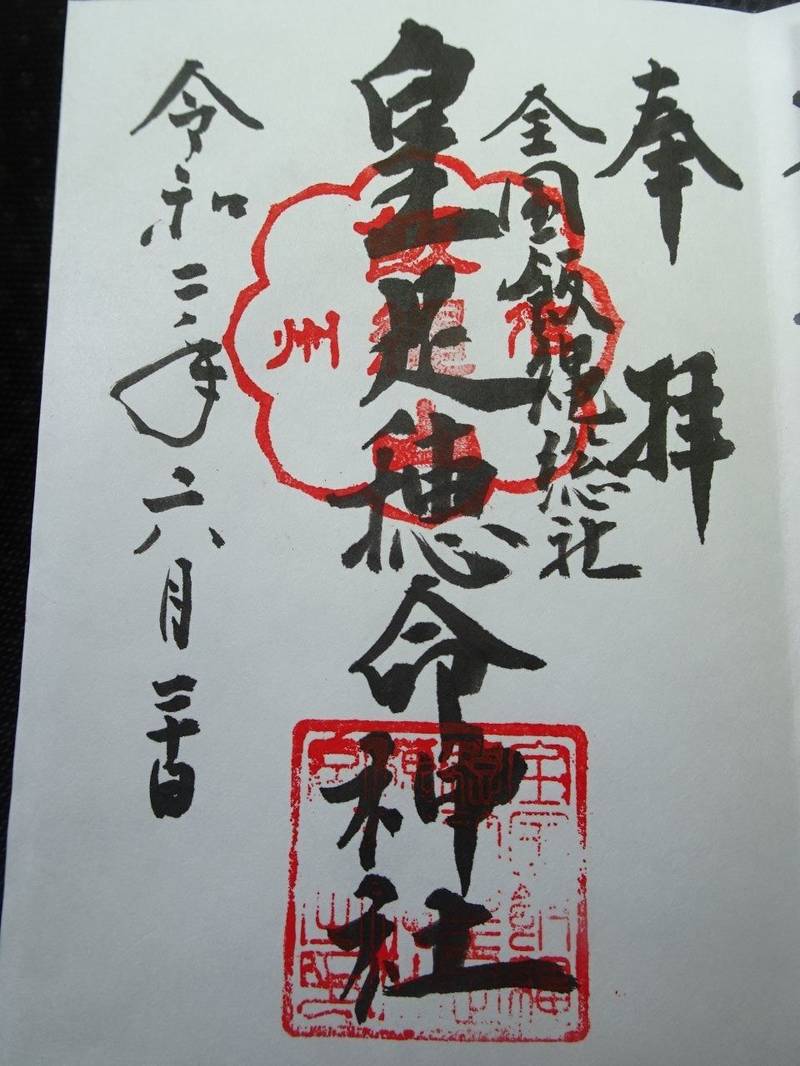 奉拝
全国飯縄総社
皇足穂命神社
令和二年六月二十日